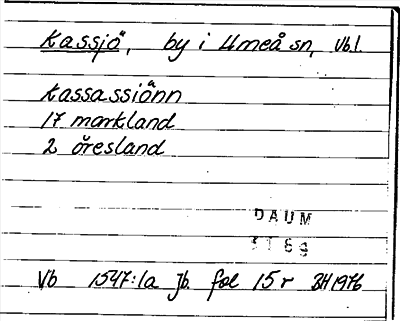 Kassjö, by i Umeå sn, Vb.l.
Kassassiönn
17 markland
2 öresland
DAUM
3169
Vb 1547:1a Jb. fol 15 r BH 1976